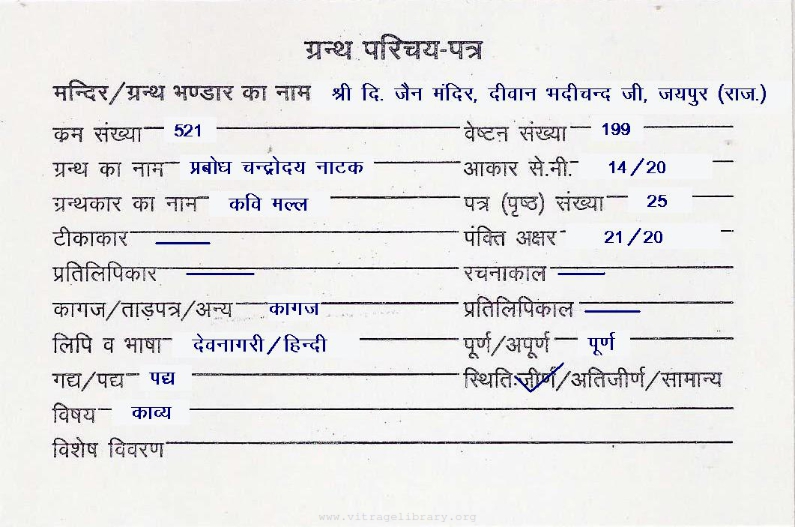 ग्रन्थ परिचय-पत्र
मन्दिर/ग्रन्थ भण्डार का नाम श्री दि. जैन मंदिर, दीवान भदीचन्द जी, जयपुर (राज.)
क्रम संख्या 521 वेष्टन संख्या 199
ग्रन्थ का नाम प्रबोध चन्द्रोदय नाटक आकार से.मी. 14/20
ग्रन्थकार का नाम कवि मल्ल पत्र (पृष्ठ) संख्या 25
टीकाकार — पंक्ति अक्षर 21/20
प्रतिलिपिकार — रचनाकाल —
कागज/ताड़पत्र/अन्य कागज प्रतिलिपिकाल —
लिपि व भाषा देवनागरी/हिन्दी पूर्ण/अपूर्ण पूर्ण
गद्य/पद्य पद्य स्थिति:जीर्ण/अतिजीर्ण/सामान्य
विषय काव्य
विशेष विवरण
www.vitragelibrary.org